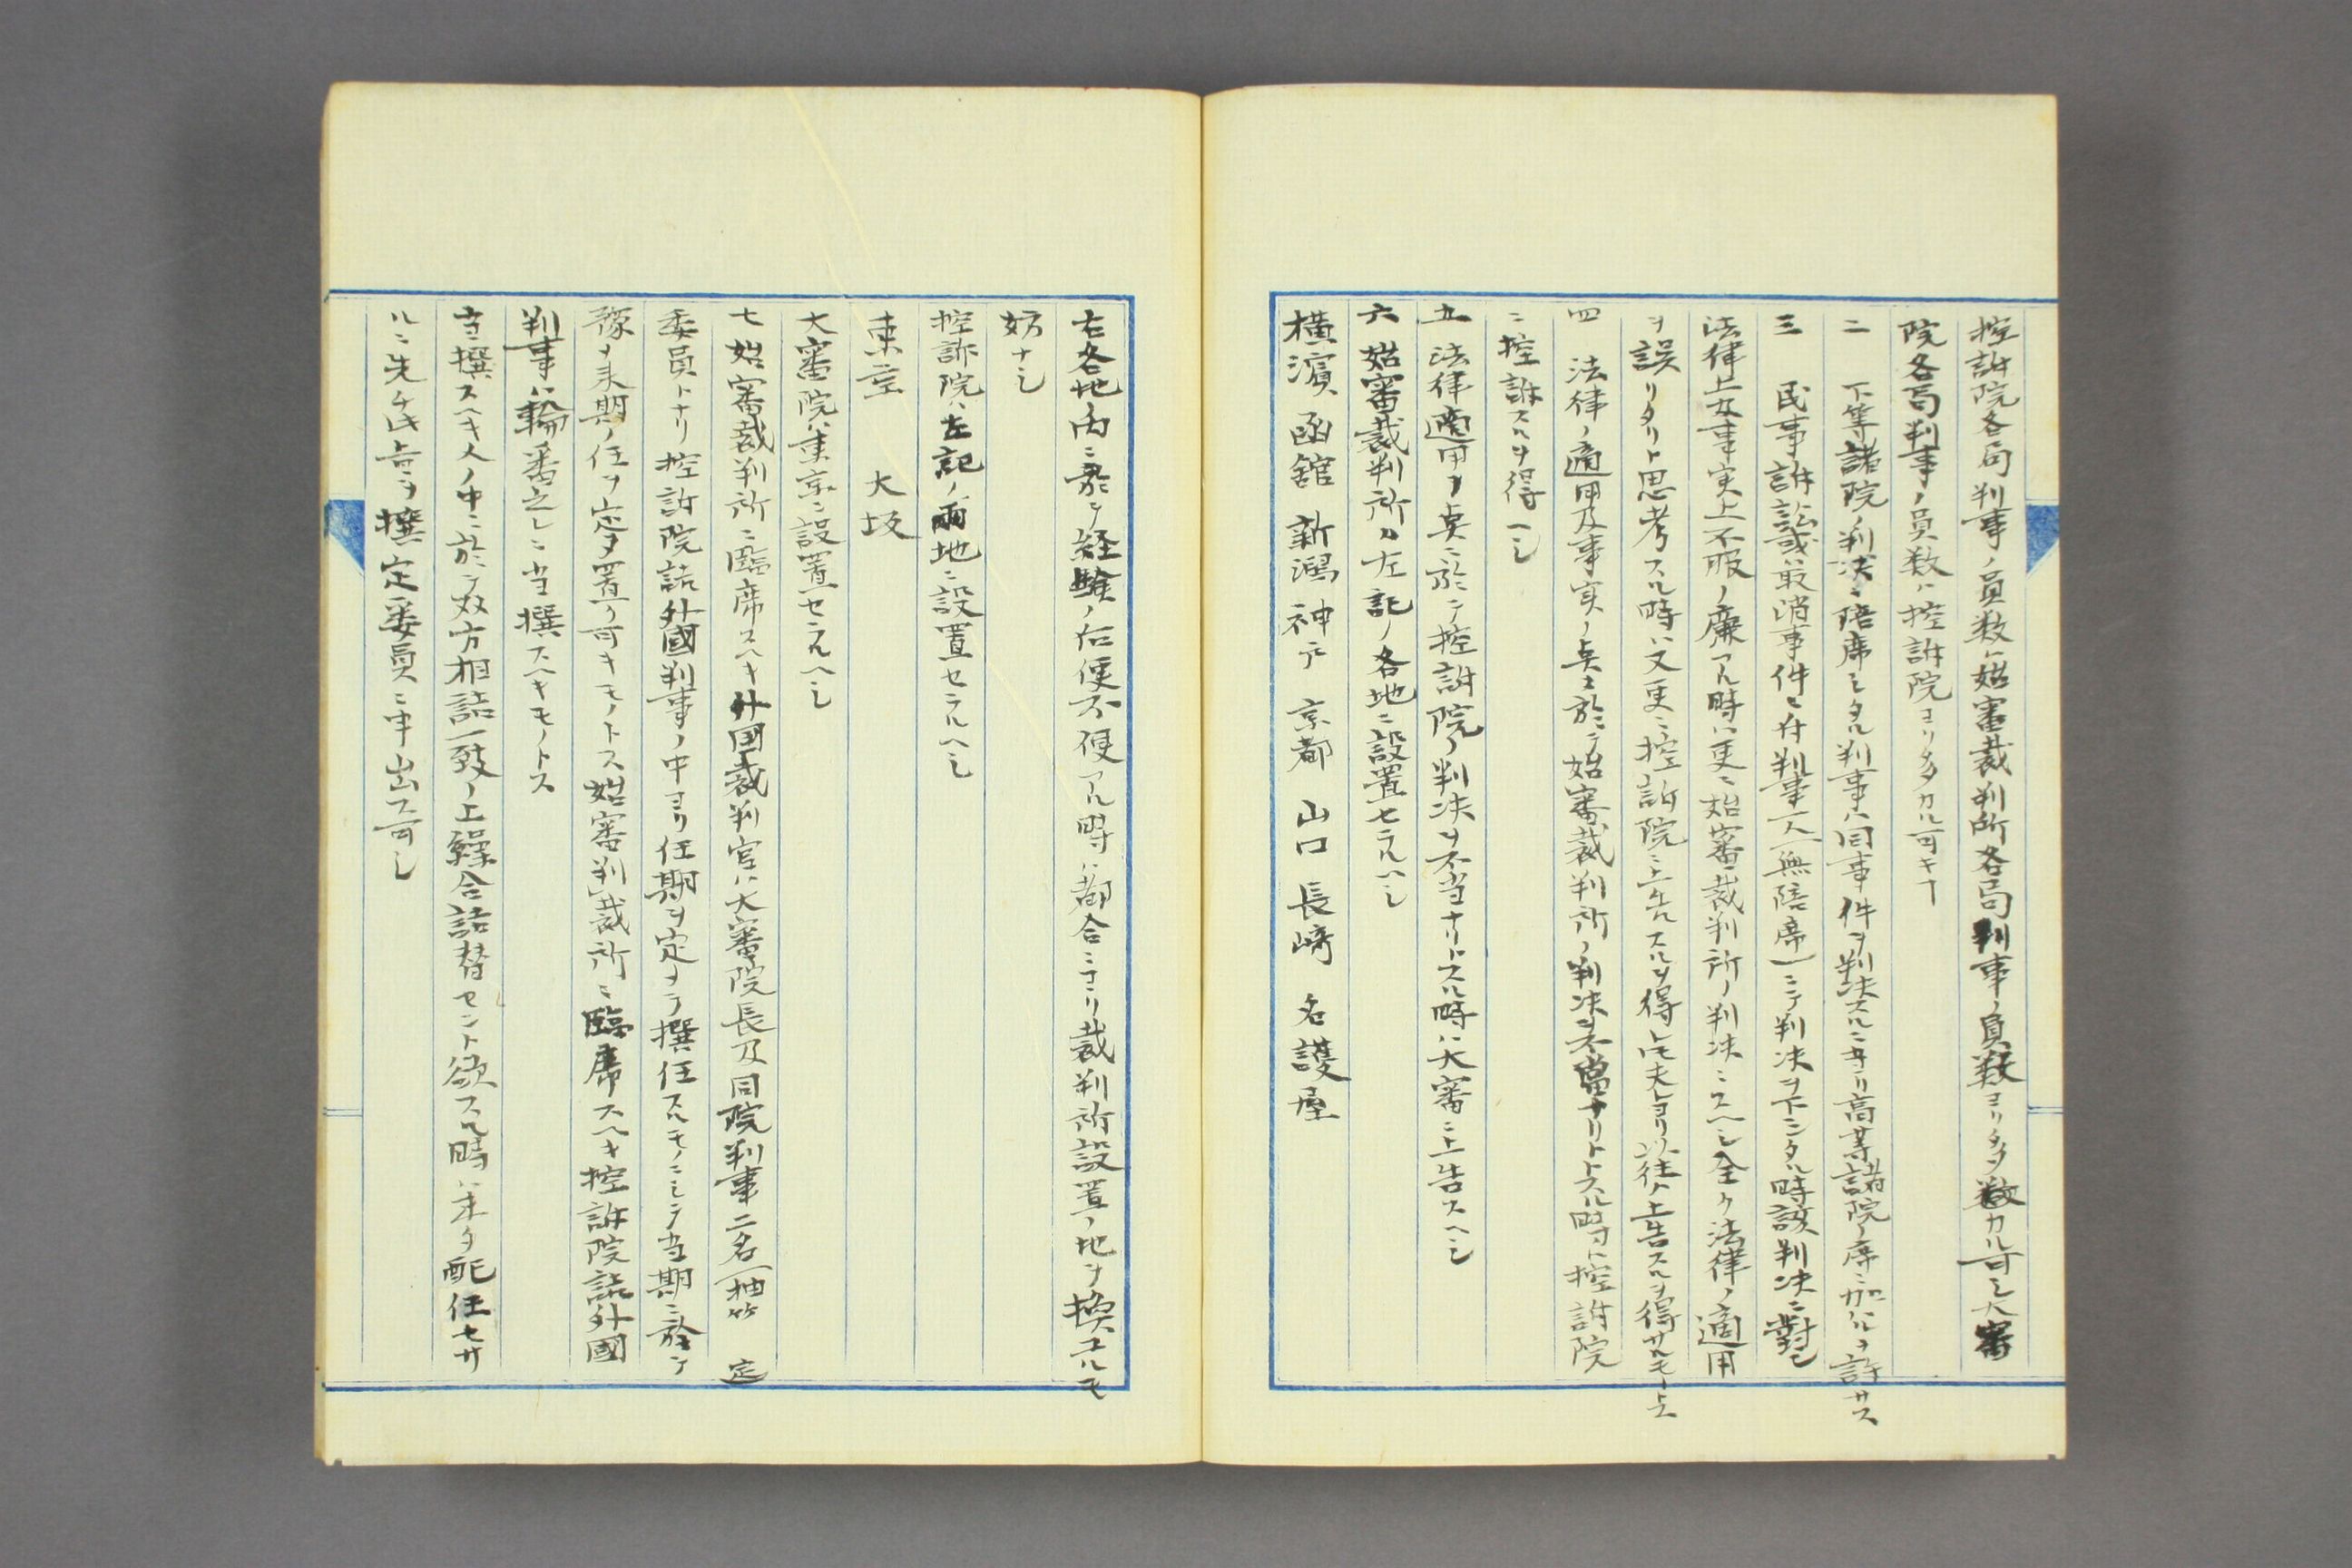 控訴院各局判事ノ員数ハ始審裁判所各局判事ノ員数ヨリ多数カル可シ大審
院各局判事ノ員数ハ控訴院ヨリ多カル可キ
二 下等諸院ノ判决ニ陪席シタル判事ハ同事件ヲ判决スルニ高等諸院ノ席ニ加ハルヲ許サス
三 民事訴訟或ハ取消事件ニ付判事一人(無陪席)ニテ判决ヲ下シタル時該判决ニ對シ
法律上及事実上不服ノ廉アル時ハ更ニ始審裁判所ノ判决ニスヘシ全ク法律ノ適用
ヲ誤リタリト思考スル時ハ又更ニ控訴院ニ上告スルヲ得レ𪜈夫ヨリ以往ハ上告スルヲ得サルモノトス
四 法律ノ適用及事実ノ点ニ於テ始審裁判所ノ判决ヲ不當ナリトスル時ハ控訴院
ニ控訴スルヲ得ヘシ
五 法律適用ノ点ニ於テ控訴院ノ判决ヲ不当ナリトスル時ハ大審ニ上告スヘシ
六 始審裁判所ハ左記ノ各地ニ設置セラルヘシ
横濱 函舘 新潟 神戸 京都 山口 長崎 名護屋
右各地内ニ於テ経験ノ后便不便アル時ハ都合ニヨリ裁判所設置ノ地ヲ換ユルモ
妨ナシ
控訴院ハ左記ノ両地ニ設置セラルヘシ
東京 大坂
大審院ハ東京ニ設置セラルヘシ
七 始審裁判所ニ臨席スヘキ外国裁判官ハ大審院長及同院判事二名(抽せん)定
委員トナリ控訴院詰外國判事ノ中ヨリ任期ヲ定メテ撰任スルモノニシテ当期ニ於テ
豫メ来期ノ任ヲ定メ置ク可キモノトス始審判裁所ニ臨席スヘキ控訴院詰外國
判事ハ輪番之レニ当撰スヘキモノトス
当撰スヘキ人ノ中ニ於テ双方相詰一致ノ上繰合詰替セント欲スル時ハ未タ配任セサ
ルニ先チ其旨ヲ撰定委員ニ申出ス可シ